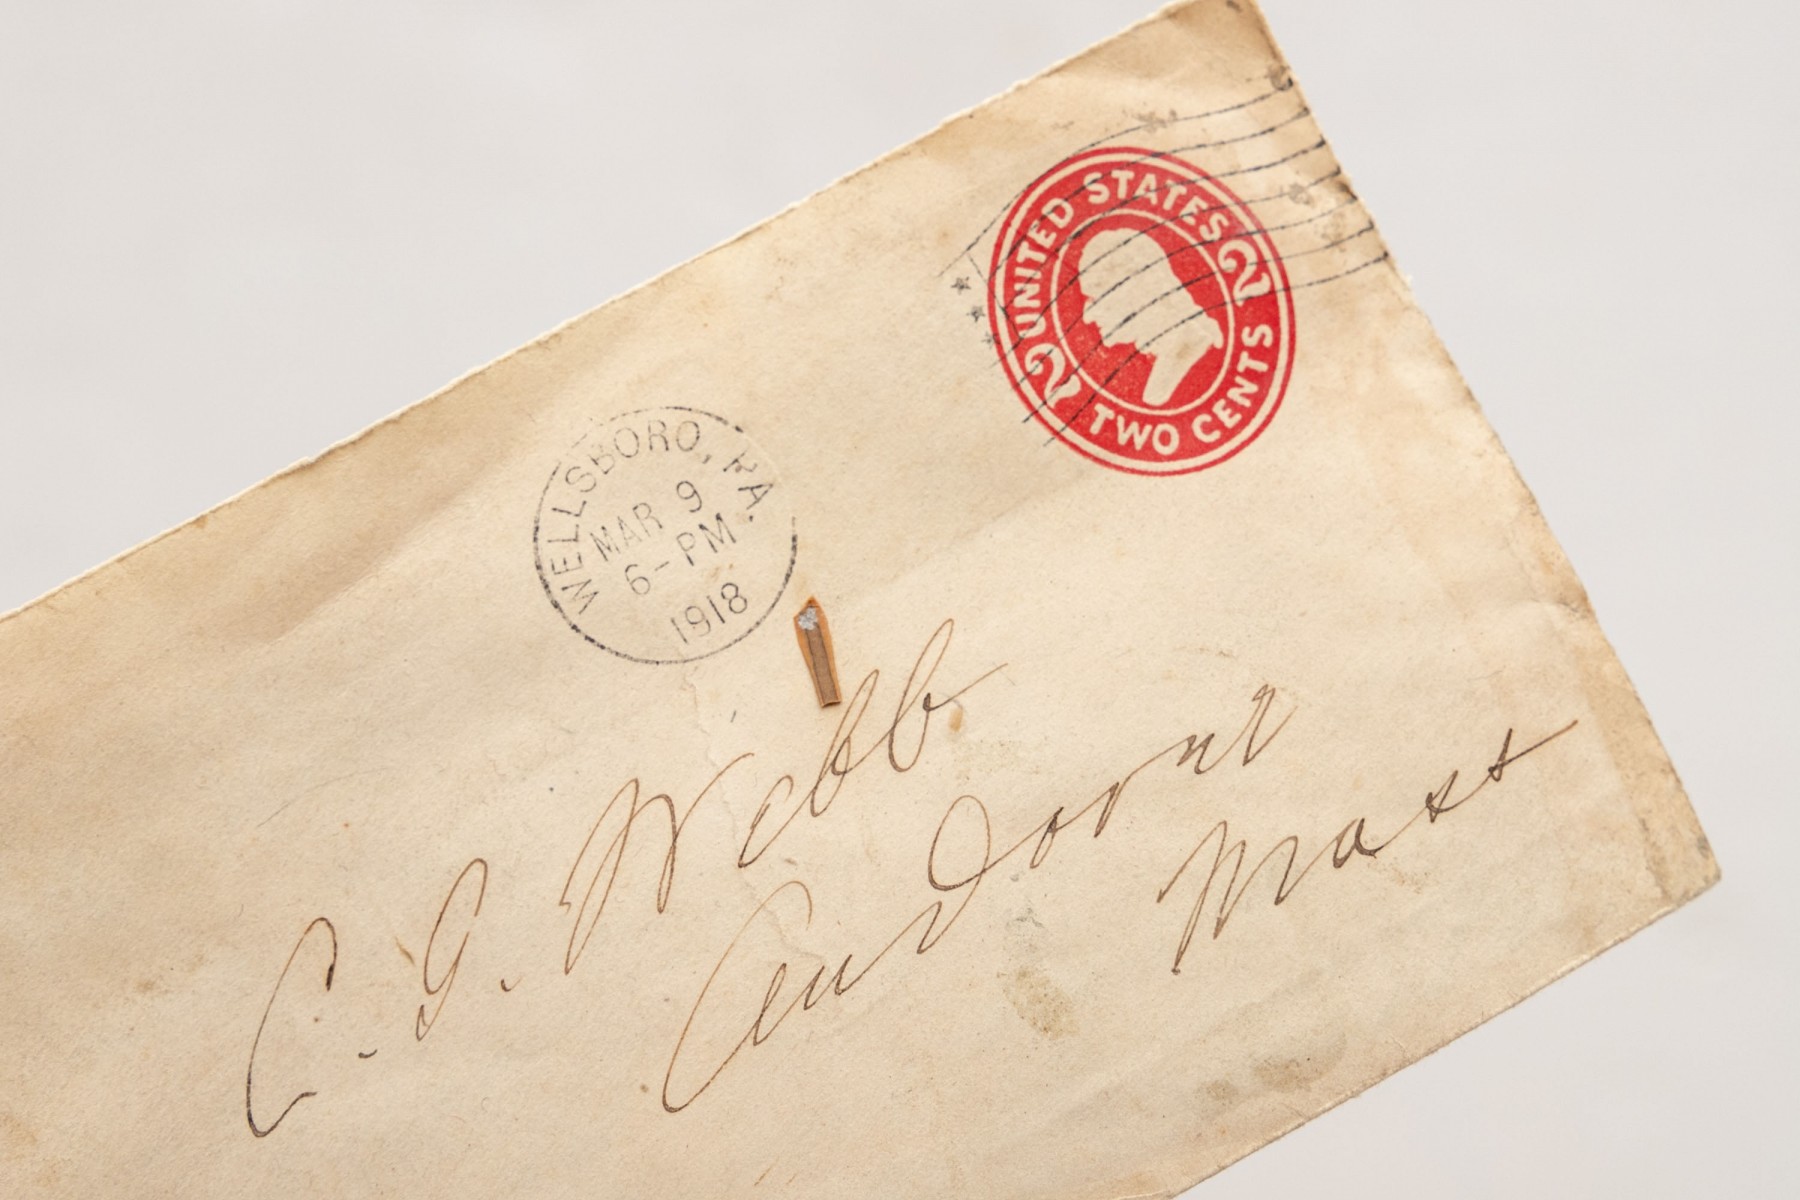 UNITED STATES
2 2
TWO CENTS
WELLSBORO, PA.
MAR 9
6-PM
1918
C. G. Webb
Andover
Mass